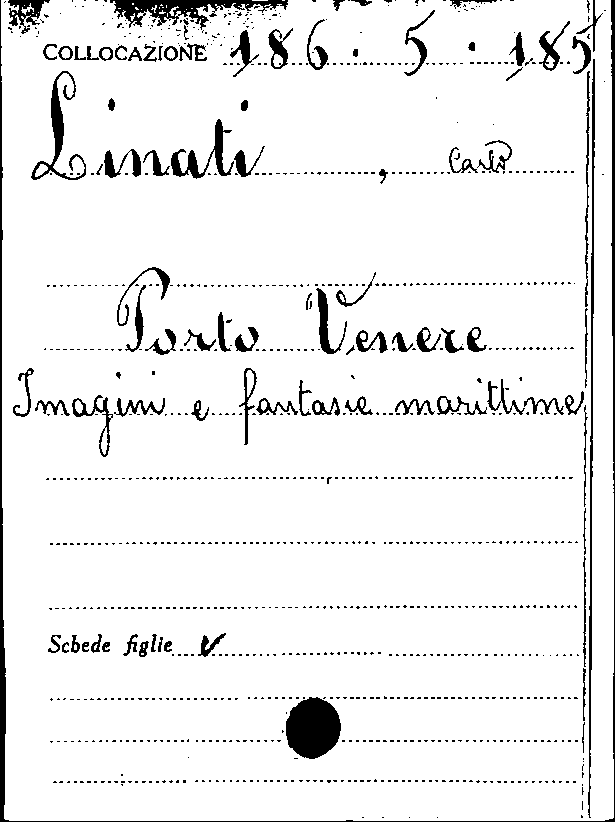 COLLOCAZIONE 186. 5. 185
Linati, Carlo
Porto Venere
Imagini e fantasie marittime
Schede figlie v